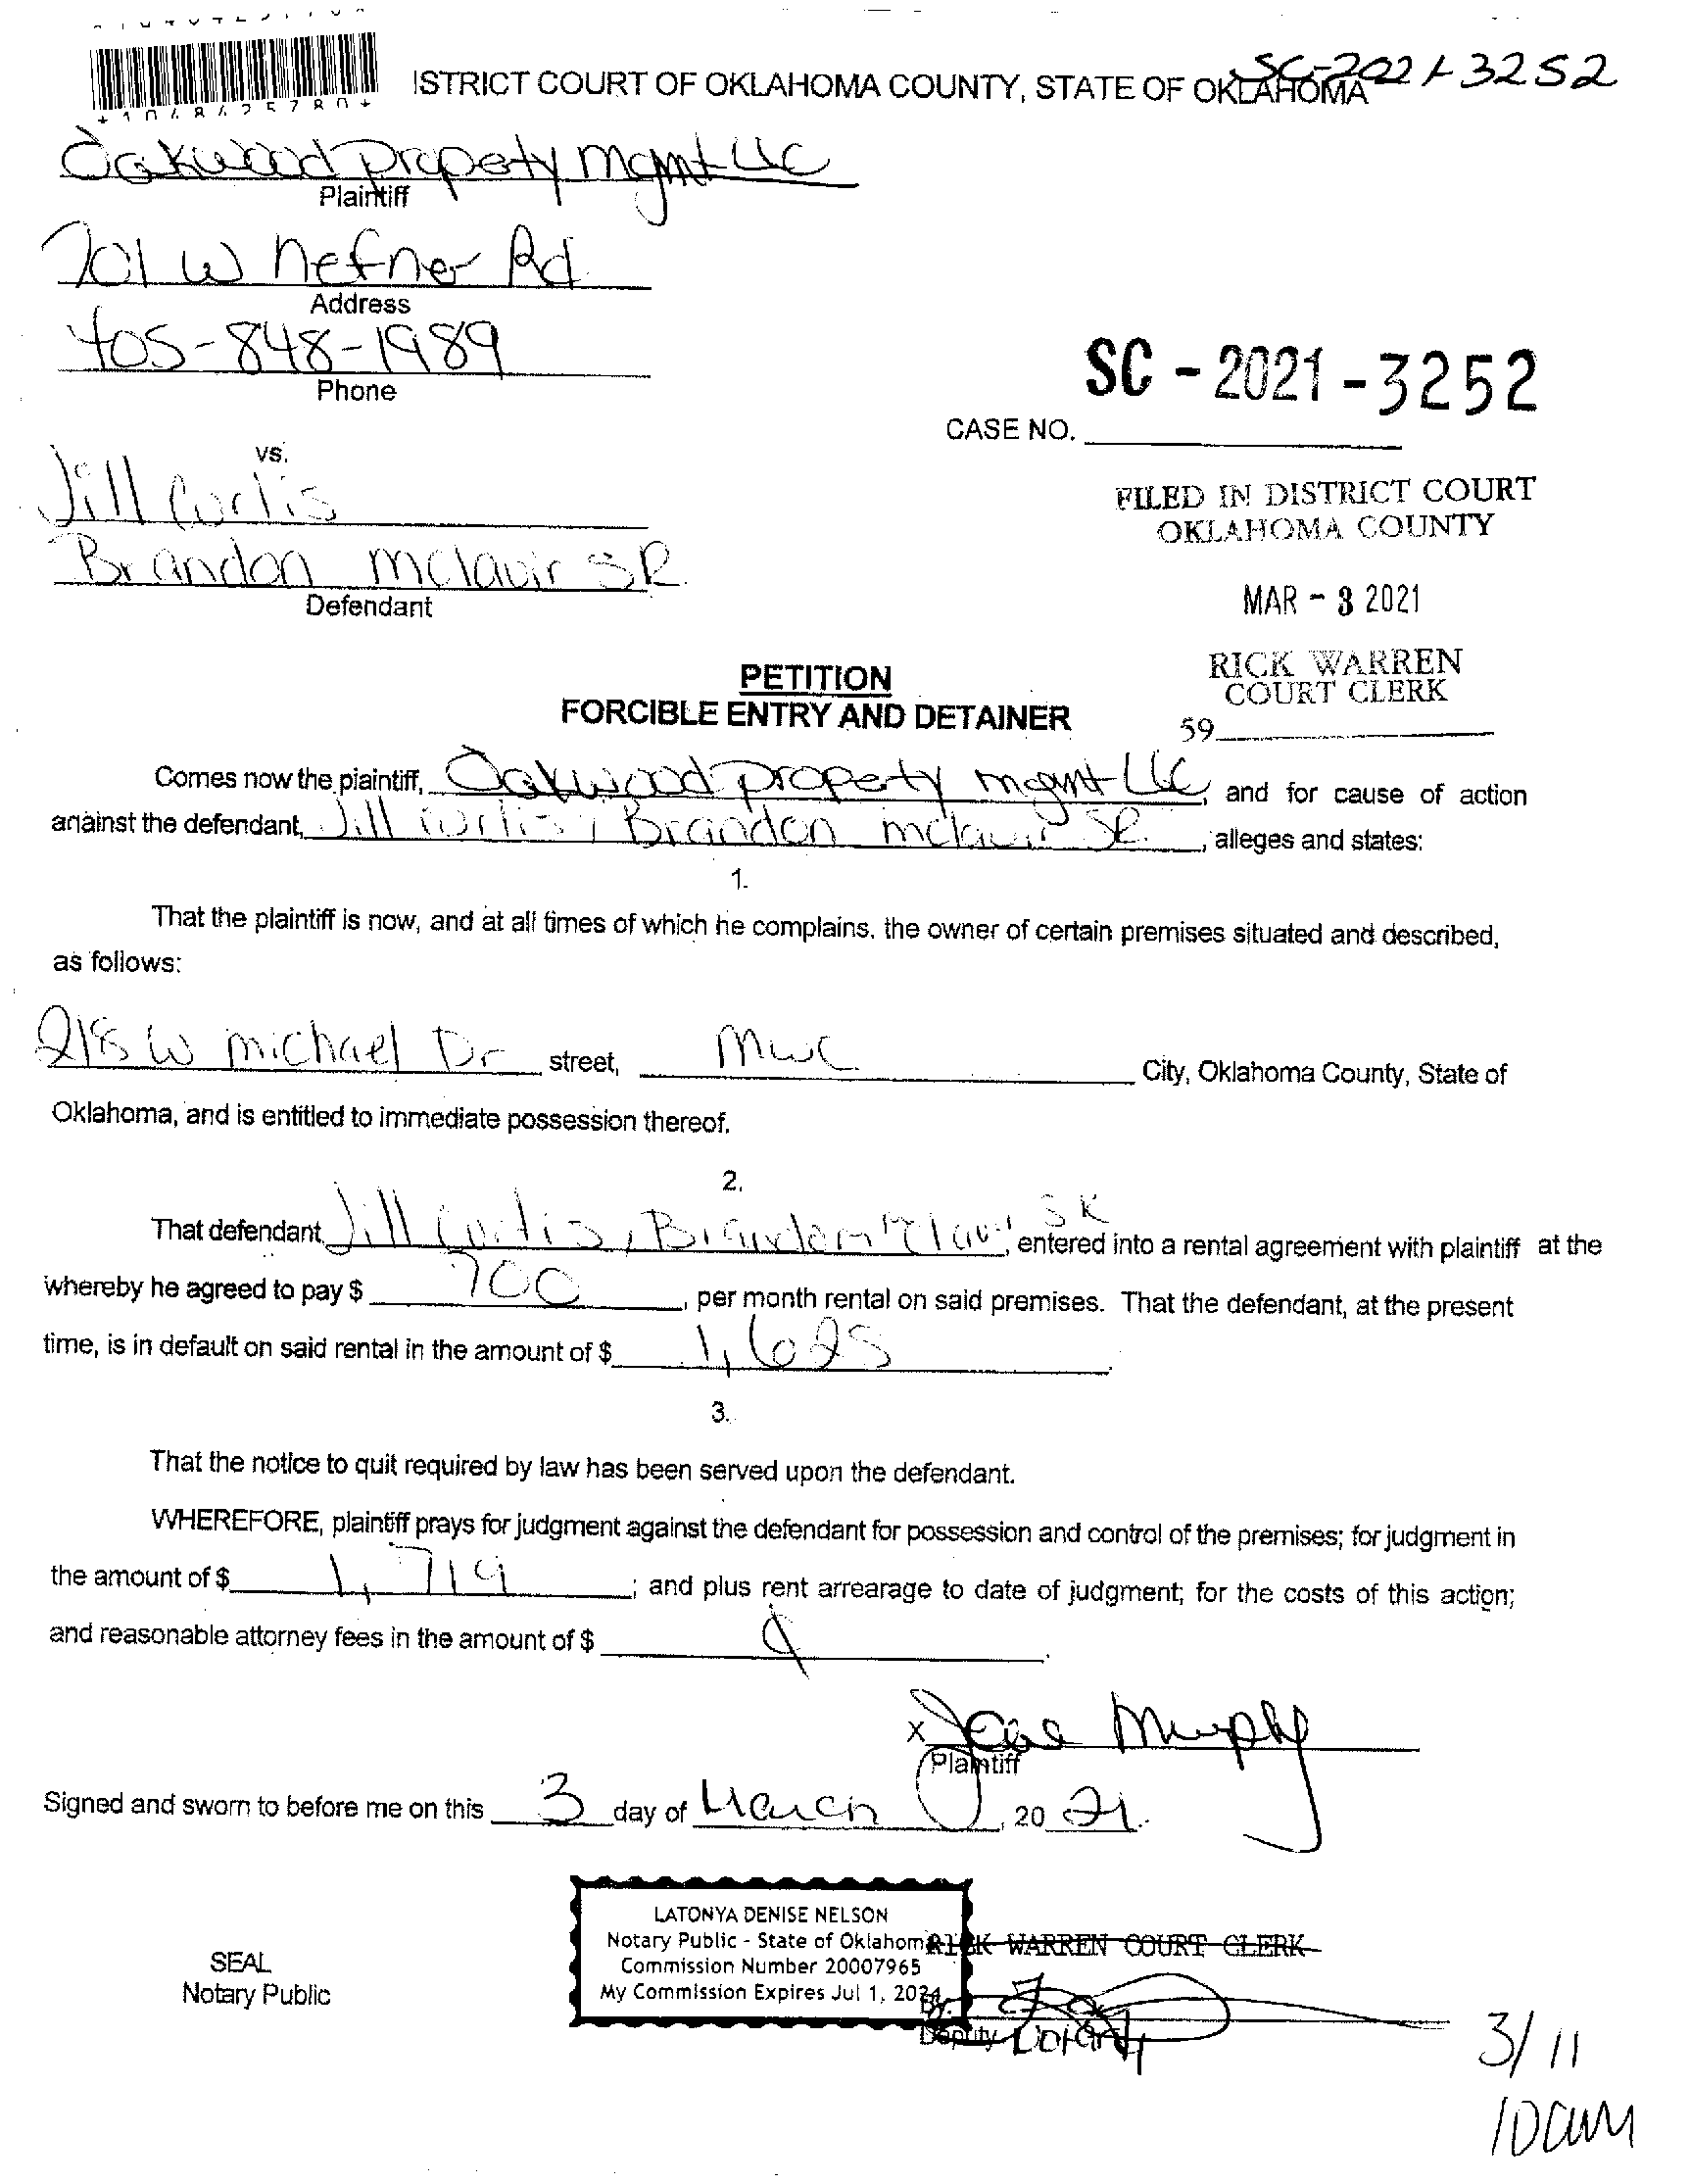 ISTRICT COURT OF OKLAHOMA COUNTY, STATE OF OKLAHOMA SC-2021-3252
Oakwood Property Mgmt LLC
Plaintiff
701 W Hefner Rd
Address
405-848-1989
Phone
SC - 2021 - 3252
CASE NO.
vs.
Jill Curtis
Brandon mclavir SR
Defendant
FILED IN DISTRICT COURT
OKLAHOMA COUNTY
MAR - 3 2021
RICK WARREN
COURT CLERK
59
PETITION
FORCIBLE ENTRY AND DETAINER
Comes now the plaintiff, Oakwood property mgmt LLC, and for cause of action
against the defendant, Jill Curtis, Brandon mclavir SR., alleges and states:
1.
That the plaintiff is now, and at all times of which he complains, the owner of certain premises situated and described,
as follows:
218 W michael Dr street, MWC City, Oklahoma County, State of
Oklahoma, and is entitled to immediate possession thereof.
2.
That defendant Jill Curtis, Brandon SR, entered into a rental agreement with plaintiff at the
whereby he agreed to pay $ 700, per month rental on said premises. That the defendant, at the present
time, is in default on said rental in the amount of $ 1,625.
3.
That the notice to quit required by law has been served upon the defendant.
WHEREFORE, plaintiff prays for judgment against the defendant for possession and control of the premises; for judgment in
the amount of $ 1,714; and plus rent arrearage to date of judgment; for the costs of this action;
and reasonable attorney fees in the amount of $
X Murphy
Plaintiff
Signed and sworn to before me on this 3 day of March, 20 21.
LATONYA DENISE NELSON
Notary Public - State of Oklahoma
Commission Number 20007965
My Commission Expires Jul 1, 2024
RICK WARREN COURT CLERK
By:
Deputy Notary
SEAL
Notary Public
3/11
10am